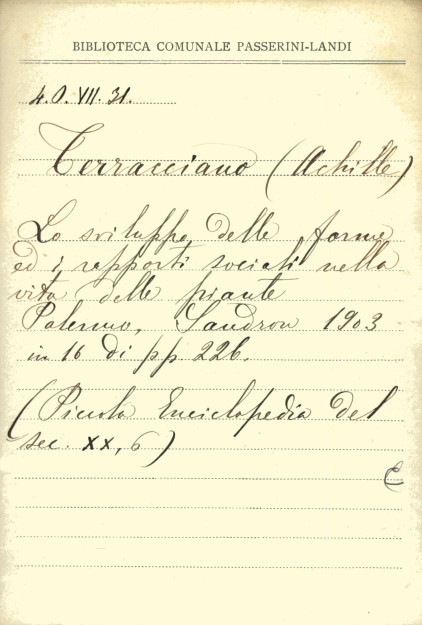 BIBLIOTECA COMUNALE PASSERINI-LANDI
4.O.VII.31.
Terracciano (Achille)
Lo sviluppo delle forme
ed i rapporti sociali nella
vita delle piante
Palermo, Sandron 1903
in 16 di pp 226.
(Piccola Enciclopedia del
sec. XX, 6)
C